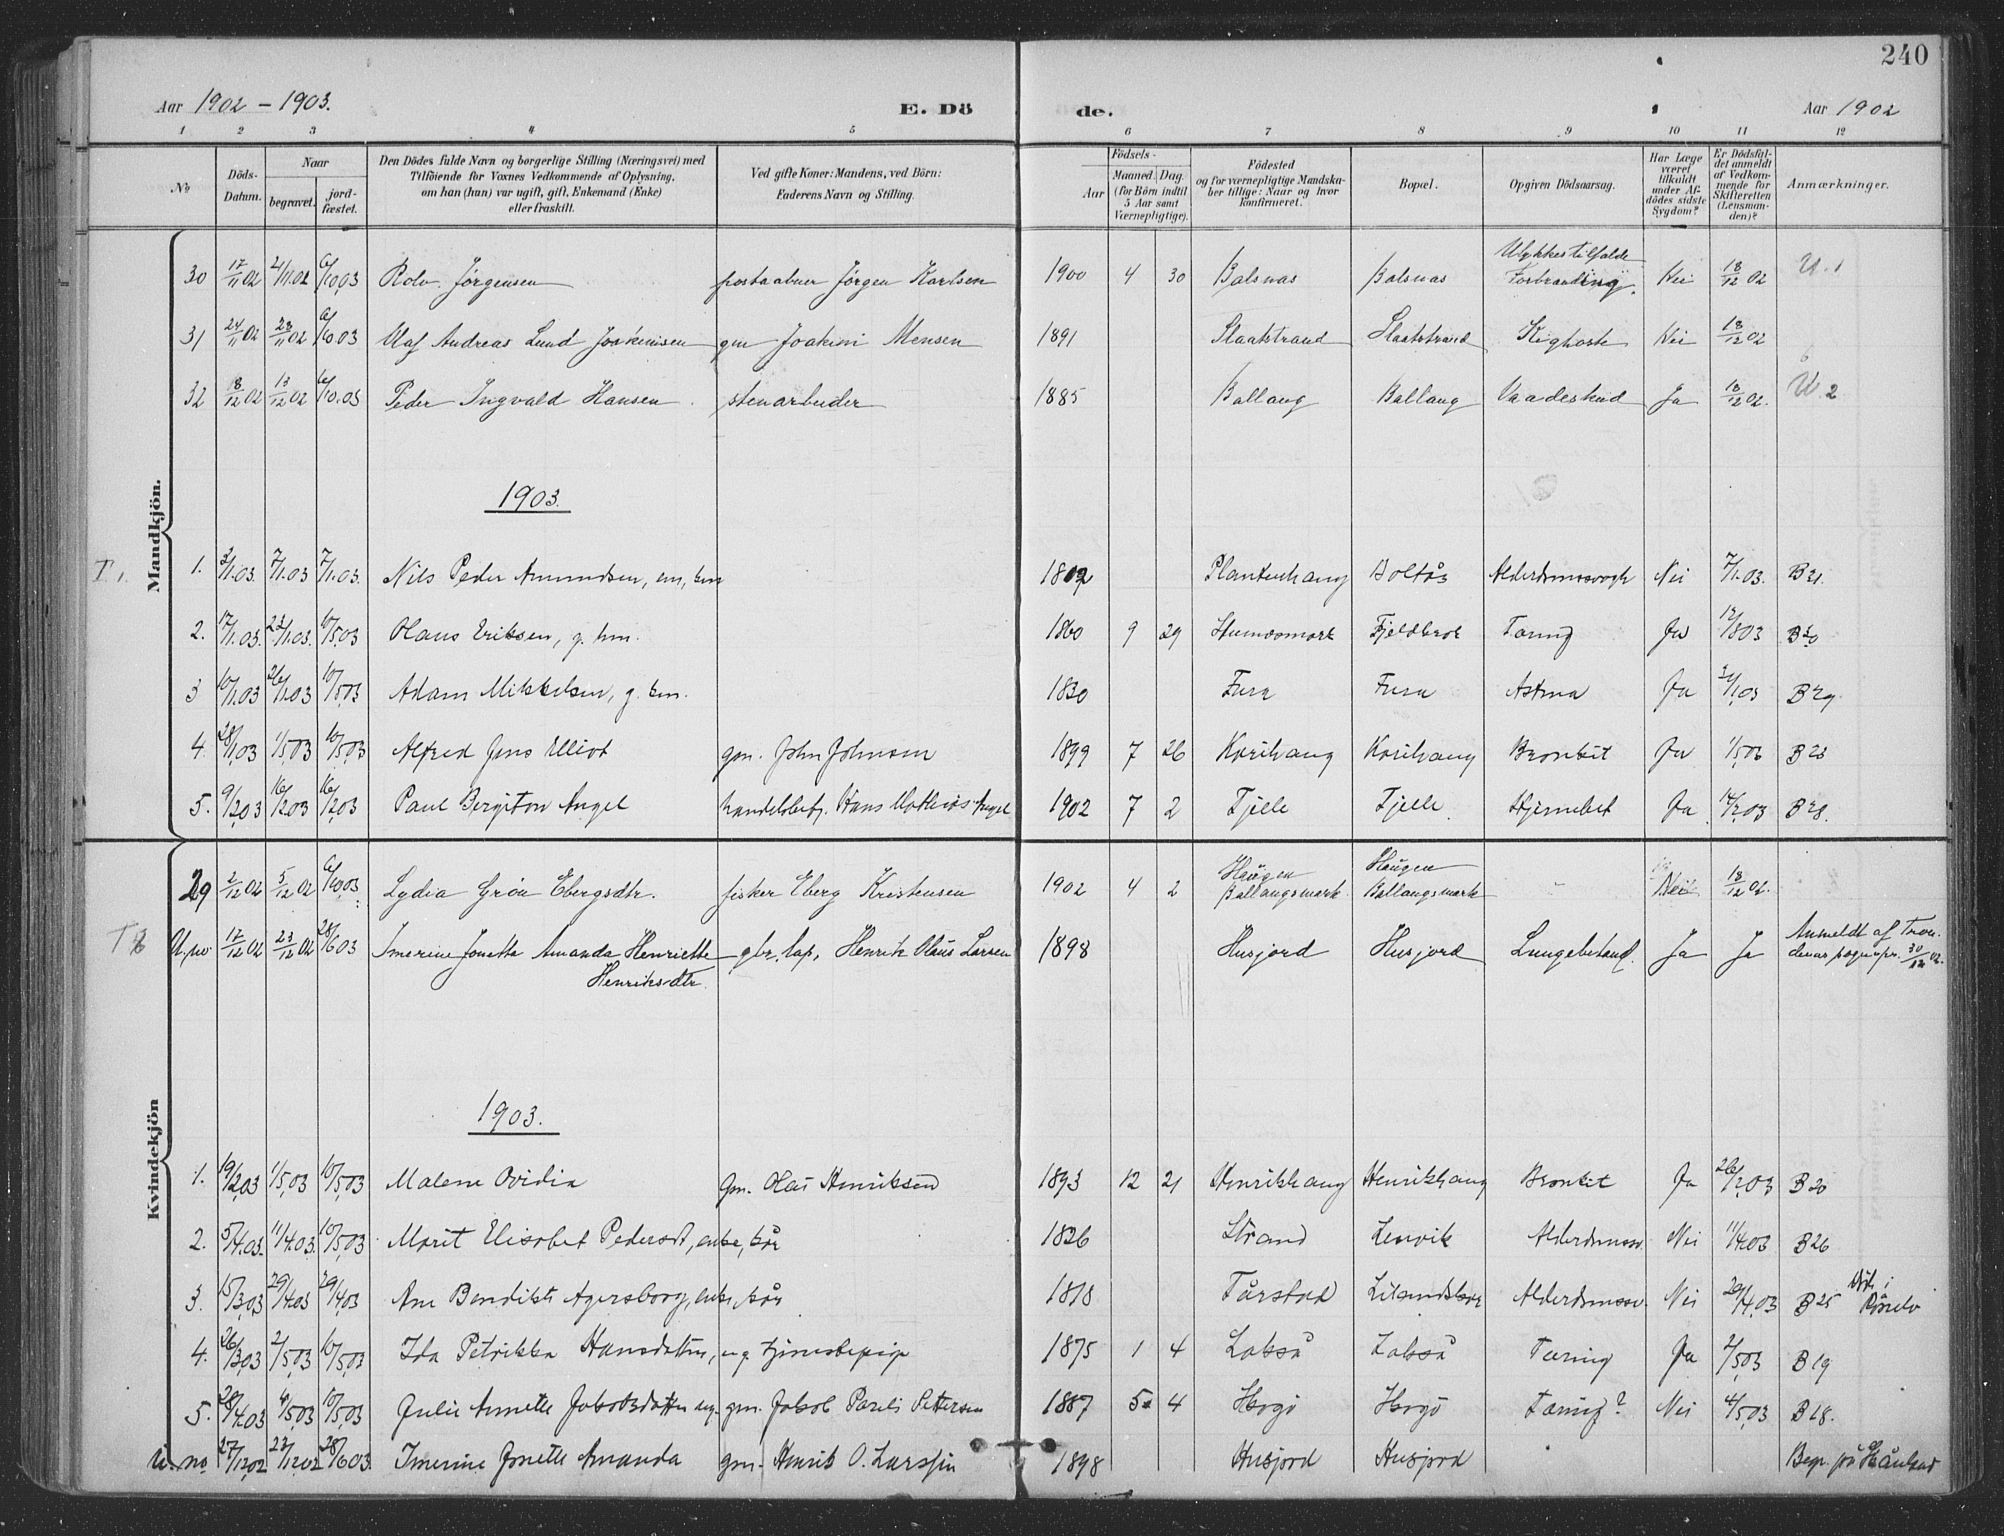 240
Aar 1902 - 1903.
E. Dö
de.
Aar 1902
1 2 3 4 5 6 7 8 9 10 11 12
No
Döds-Datum.
Naar
begravet.
jord-fæstet.
Den Dödes fulde Navn og borgerlige Stilling (Næringsvei) med
Tilföiende for Voxnes Vedkommende af Oplysning,
om han (hun) var ugift, gift, Enkemand (Enke)
eller fraskilt.
Ved gifte Koner: Mandens, ved Börn:
Faderens Navn og Stilling.
Födsels-
Aar
Maaned. Dag.
(for Börn indtil
5 Aar samt
Værnepligtige).
Födested
og for værnepligtige Mandska-
ber tillige: Naar og hvor
konfirmeret.
Bopæl.
Opgiven Dödsaarsag.
Har Læge
været
tilkaldt
under Af-
dödes sidste
Sygdom?
Er Dödsfal-
det anmeldt
af Vedkom-
mende for
Skifteretten
(Lensman-
den)?
Anmærkninger.
Mandkjön.
30 17/11 02 2/11.02 6/10.03 Rolv Jörgensen postaabner Jörgen Karlsen 1900 4 30 Balsnas Balsnas Ulykkestilfælde Forbrænding. Nei 18/12 02 U. 1
31 24/11 02 28/11 02 6/10.03 Olaf Andreas Lund Joakimsen gm Joakim Mensen 1891 Slaatstrand Slaatstrand Kighoste Nei 18/12 02
32 8/12 02 13/12 02 6/10.03 Peder Ingvald Hansen stenarbeider 1885 Ballang Ballang Vaadeskud Ja 18/12 02. U. 2
1903.
T 1.
1. 3/1.03. 7/1.03 7/1.03. Nils Peder Amundsen, em, 1802 Plantenhaug Boltås Nei 7/1.03. B 21.
2. 17/1.03. 23/1.03. 10/5.03 Olaus Eriksen, g. 1860 9 29 Fjeldbrot Tæring Ja 12/8 03 B 20
3 10/1.03 26/1.03 10/5.03 Adam Mikkelsen, g. 1830 Fura Fura Astma Ja B 29.
4. 28/1.03 1/5.03 10/5.03 Alfred Jens Elliot gm. John Johnsen 1899 7 26 Korihaug Korihaug Bronkit Ja 1/5.03 B 23
5. 9/2.03 16/2.03 16/2.03 Paul Bergiton Angel handelsbetj. Hans Mathias Angel 1902 7 2 Fjelle Fjelle. Hjernebet Ja 16/2.03 B 28.
Kvindekjön
29 2/12 02 5/12 02 6/10.03 Lydia Grön Ebergsdtr. fisker Eberg Kristensen 1902 4 2 Haugen Ballangsmark. Haugen Ballangsmark - Nei 18/12 02.
U. no 17/12 02 23/12 02 28/6 03 Imerine Jonetta Amanda Henriette Henriksdtr. gbr. lap. Henrik Olaus Larsen 1898 Husjord Husjord Lungebetænd. Ja Ja Anmeldt af Tron-denæs sognepr. 30/12 02.
1903.
1. 19/2.03 1/5.03 10/5.03 Malene Ovidia gm. Olai Henriksen 1893 12 21 Henrikhaug Henrikhaug Bronkit Ja 26/2.03 B 20
2. 5/4.03. 11/4.03. 10/5.03 Marit Elisabet Pedersdt, enke, kår 1826 Strand Lenvik Alderdomssv. Nei 11/4.03 B 26
3. 15/3.03 29/4.03 29/4.03 Ane Bendikte Agersborg, enke, kår 1818 Tårstad Alderdomssv. Nei 29/4.03 B 25 Död i
4. 26/3.03 2/5.03 10/5.03 Ida Petrikka Hansdatter, ug. tjenestepige 1875 1 4 Lakså Lakså Tæring Ja 2/5.03 B 19
5. 28/4.03 4/5.03 10/5.03 Julie Annette Jakobsdatter ug. gm. Jakob Pareli Pettersen 1887 5 4 Hergö Hergö Tæring? Nei 4/5.03 B 18.
u. no 27/12.02 23/12.02 28/6.03. Imerine Jonette Amanda gm. Henrik O. Larssen 1898 Husjord Husjord Begr. på